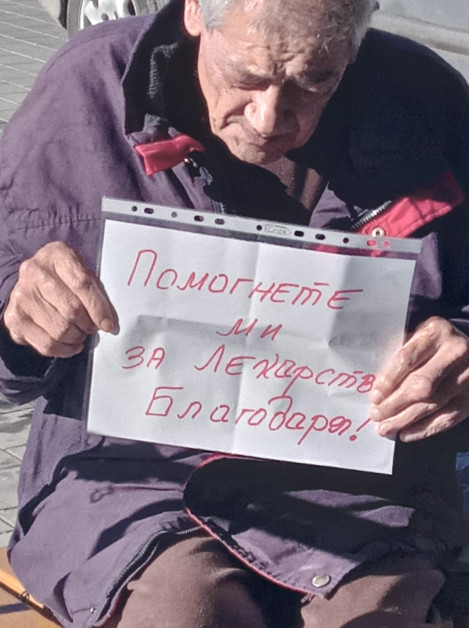 Помогнете
ми
за Лекарств
Благодаря!